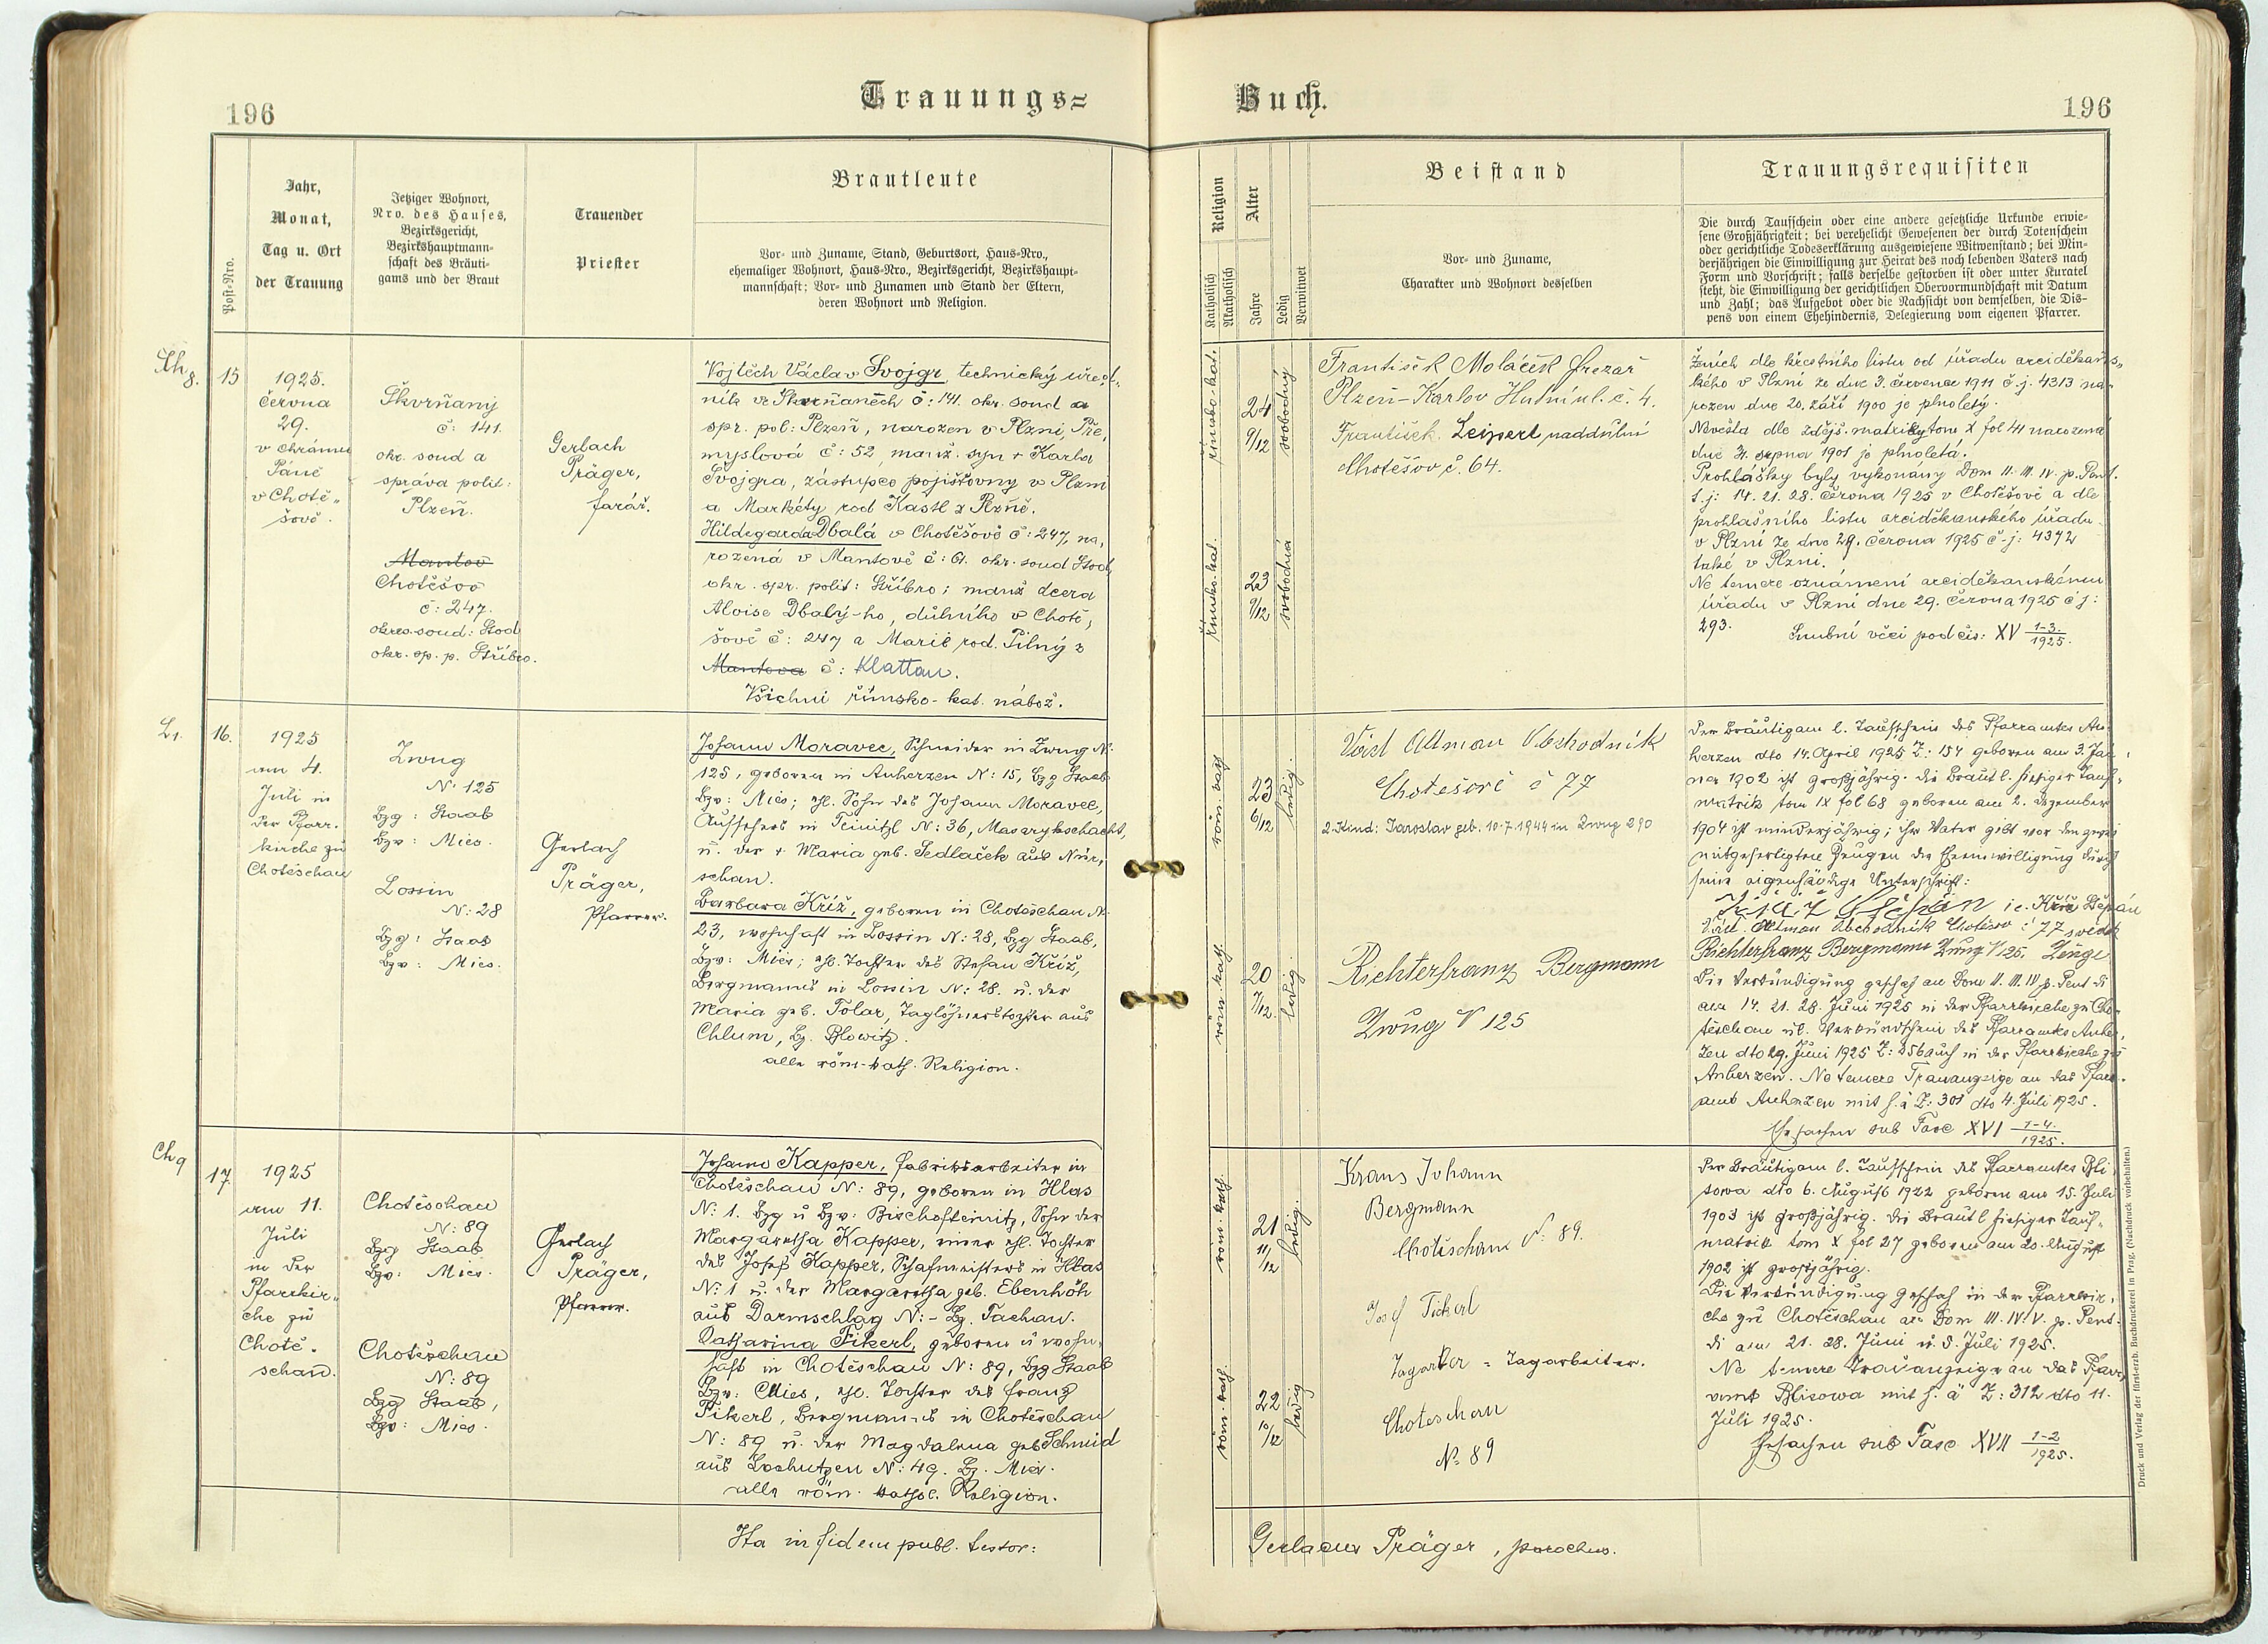 196
Trauungs=
Post-Nro.
Jahr,
Monat,
Tag u. Ort
der Trauung
Jetziger Wohnort,
Nro. des Hauses,
Bezirksgericht,
Bezirkshauptmann-
schaft des Bräuti-
gams und der Braut
Trauender
Priester
Brautleute
Vor- und Zuname, Stand, Geburtsort, Haus-Nro.,
ehemaliger Wohnort, Haus-Nro., Bezirksgericht, Bezirkshaupt-
mannschaft; Vor- und Zunamen und Stand der Eltern,
deren Wohnort und Religion.
Ch 8.
15
1925.
června
29.
v chrámu
Páně
v Chotě„
šově.
Škvrňany
č: 141.
okr. soud a
správa polit:
Plzeň.
Mantov
Chotěšov
č: 247.
okres. soud: Stod
okr. sp. p. Stříbro.
Gerlach
Präger,
farář.
Vojtěch Václav Svojgr, technický úřed„
ník ve Škvrňanech č: 141. okr. soud a
spr. pol: Plzeň, narozen v Plzni, Pře,
myslová č: 52, manž. syn + Karla
Švojgra, zástupce pojišťovny v Plzni
a Markéty rod Kastl z Plzně.
Hildegarda Dbalá v Chotěšově č: 247, na,
rozená v Mantově č: 61. okr. soud Stod,
okr. spr. polit: Stříbro; manž dcera
Aloise Dbalý-ho, důlního v Chotě,
šově č: 247 a Marie rod. Pilný z
Mantova č: Klattau.
Všichni římsko-kat. nábož.
L1.
16.
1925
am 4.
Juli in
der Pfarr-
kirche zu
Choteschau
Zwug
N: 125
Bzg: Staab
Bzv: Mies.
Lossin
N: 28
Bzg: Staab
Bzv: Mies.
Gerlach
Präger,
Pfarrer.
Johann Moravec, Schneider in Zwug N:
125, geboren in Auherzen N: 15, Bzg Staab
Bzv: Mies; ehl. Sohn des Johann Moravec,
Aufsehers in Teinitzl N: 36, Masarykschacht,
u. der + Maria geb. Sedlaček aus Nür,
schan.
Barbara Kříž, geboren in Choteschau N:
23, wohnhaft in Lossin N: 28, Bzg Staab,
Bzv: Mies; ehl. Tochter des Stefan Kříž,
Bergmanns in Lossin N: 28. u. der
Maria geb. Tolar, Taglöhnerstochter aus
Chlum, Bz. Blowitz.
alle röm-kath. Religion.
Ch 9
17
1925
am 11.
Juli
in der
Pfarrkir„
che zu
Chote„
schau.
Choteschau
N: 89
Bzg Staab
Bzv: Mies.
Choteschau
N: 89
Bzg Staab,
Bzv: Mies.
Gerlach
Präger,
Pfarrer.
Johann Kapper, Fabriksarbeiter in
Choteschau N: 89, geboren in Hlas
N: 1. Bzg u Bzv: Bischofteinitz, Sohn der
Margaretha Kapper, einer ehl. Tochter
des Josef Kapper, Schafmeisters in Hlas
N: 1 u. der Margaretha geb. Ebenhöh
aus Darmschlag N: - Bz. Tachau.
Katharina Fikerl, geboren u wohn„
haft in Choteschau N: 89, Bzg Staab
Bzv: Mies, ehl. Tochter des Franz
Fikerl, Bergmanns in Choteschau
N: 89 u. der Magdalena geb Schmid
aus Lochutzen N: 49. Bz. Mies.
alle röm. kathol. Religion.
Ita in fidem publ. testor:
Buch.
196
Religion
Katholisch
Akatholisch
Alter
Jahre
Ledig
Verwitwet
Beistand
Vor- und Zuname,
Charakter und Wohnort desselben
Trauungsrequisiten
Die durch Taufschein oder eine andere gesetzliche Urkunde erwie-
sene Großjährigkeit; bei verehelicht Gewesenen der durch Totenschein
oder gerichtliche Todeserklärung ausgewiesene Witwenstand; bei Min-
derjährigen die Einwilligung zur Heirat des noch lebenden Vaters nach
Form und Vorschrift; falls derselbe gestorben ist oder unter Kuratel
steht, die Einwilligung der gerichtlichen Obervormundschaft mit Datum
und Zahl; das Aufgebot oder die Nachsicht von demselben, die Dis-
pens von einem Ehehindernis, Delegierung vom eigenen Pfarrer.
římsko-kat.
24
9/12
svobodný
římsko-kat.
23
9/12
svobodná
František Moláček frezař
Plzeň-Karlov Hutní ul. č. 4.
František Leipert naddůlní
Chotěšov č. 64.
Ženich dle křestního listu od úřadu arciděkans„
kého v Plzni ze dne 3. července 1911 č.j. 4313 na„
rozen dne 20. září 1900 je plnoletý.
Nevěsta dle zdějš. matriky tom X fol 41 narozená
dne 4. srpna 1901 je plnoletá.
Prohlášky byly vykonány Dom II. III. IV. p. Pent.
t.j: 14. 21. 28. června 1925 v Chotěšově a dle
prohlašního listu arciděkanského úřadu
v Plzni ze dne 29. června 1925 č-j: 4372
také v Plzni.
Ne temere oznámení arciděkanskému
úřadu v Plzni dne 29. června 1925 č j:
293.
Snubní věci pod čís: XV 1-3./1925.
röm. kath
23
6/12
ledig.
röm. kath.
20
7/12.
ledig.
Vojt Altman Obchodník
Chotěšově č 77
2. Kind: Jaroslav geb. 10.7.1944 in Zwug 290
Richter Franz Bergmann
Zwug N 125
Der Bräutigam l. Taufschein des Pfarramtes Au„
herzen dto 14. April 1925 Z: 154 geboren am 3. Jän„
ner 1902 ist großjährig. die Braut l. hiesiger Tauf„
matrik tom IX fol 68 geboren am 2. Dezember
1904 ist minderjährig; ihr Vater gibt vor den
mitgefertigten Zeugen die Eheeinwilligung durch
seine eigenhändige Unterschrift:
Křiž Štěpán i.e. Kříž Štěpán
Altman Obchodník Chotěšov č 77 svědek
Richter Franz Bergmann Zwug N 125. Zeuge
Die Verkündigung geschah an Dom II. III. IV p. Pent di
am 14. 21. 28. Juni 1925 in der Pfarrkirche zu Cho„
teschau u. l. Verkündschein des Pfarramts Auher,
zen dto 29. Juni 1925 Z: 256 auch in der Pfarrkirche zu
Auherzen. Ne temere Trauanzeige an das Pfarr„
amt Auherzen mit h. ä Z: 301 dto 4. Juli 1925.
Ehesachen sub Fasc XVI 1-4./1925.
röm. kath.
21
11/12
ledig.
röm. kath.
22
10/12
ledig
Kraus Johann
Bergmann
Choteschau N: 89.
Josef Fickerl
Tagarber = Tagarbeiter.
Choteschau
N: 89
Der Bräutigam l. Taufschein des Pfarramtes Bli„
sowa dto 6. August 1922 geboren am 15. Juli
1903 ist großjährig. Die Braut l hiesiger Tauf„
matrik tom X fol 27 geboren am 20. August
1902 ist großjährig.
Die Verkündigung geschah in der Pfarrkir„
che zu Choteschau an Dom III. IV. V. p. Pent.
di am 21. 28. Juni u. 5. Juli 1925.
Ne temere Trauanzeige an das Pfarr„
amt Blisowa mit h. ä Z: 312 dto 11.
Juli 1925.
Ehesachen sub Fasc XVII 1-2/1925.
Gerlacus Präger, parochus.
Druck und Verlag der fürst-erzb. Buchdruckerei in Prag. (Nachdruck vorbehalten.)